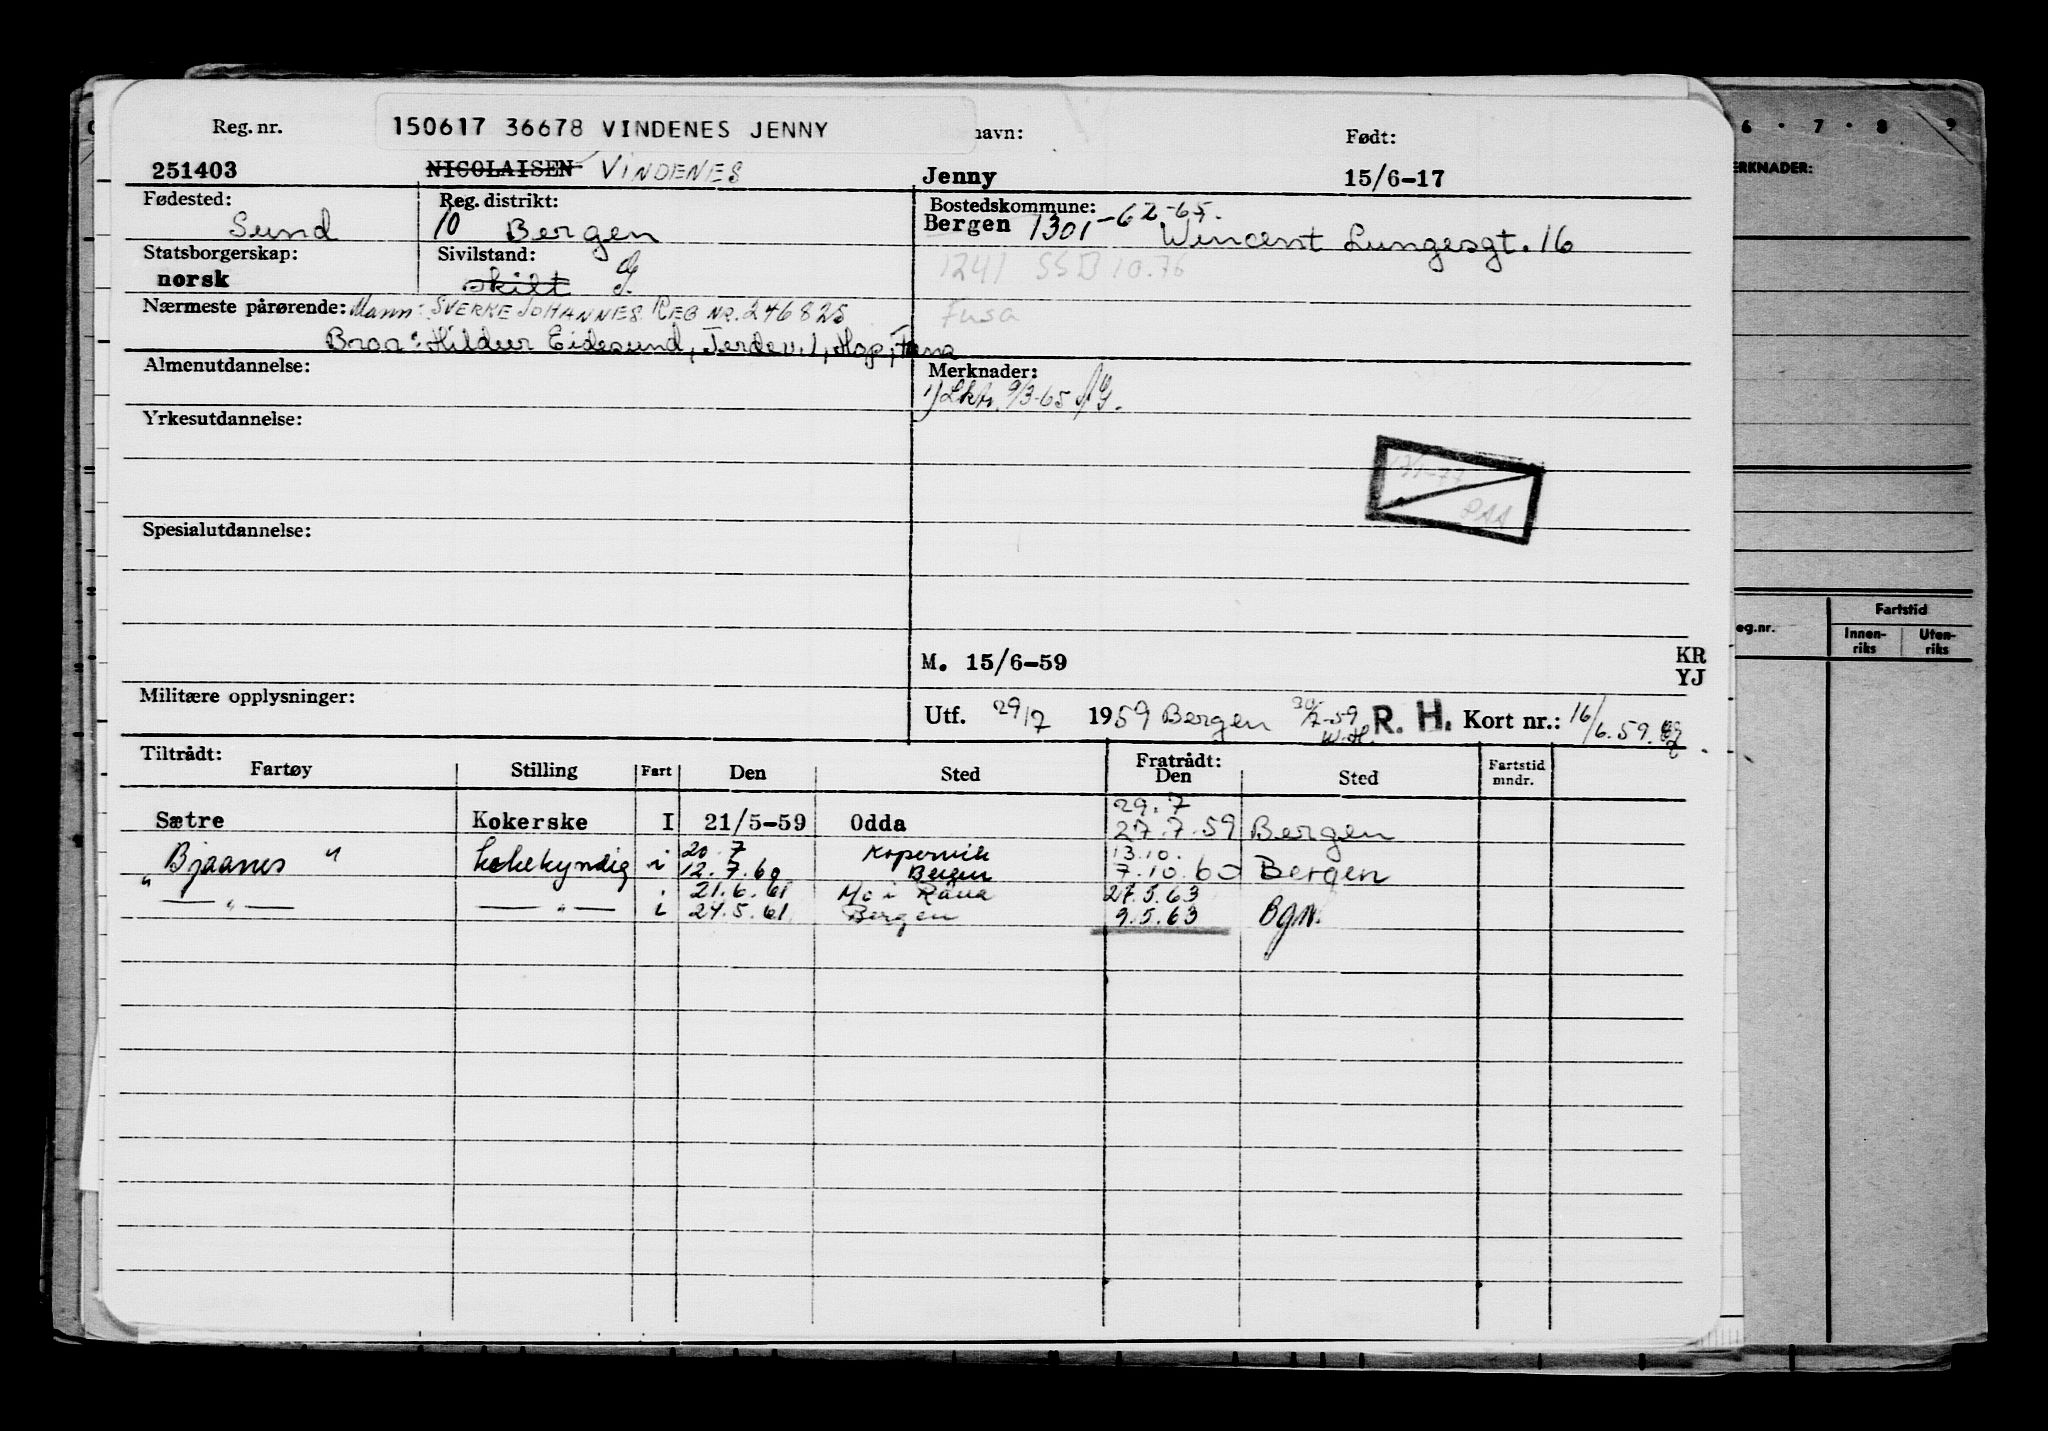 Reg. nr. 150617 36678 VINDENES JENNY navn: Født:
251403 NICOLAISEN VINDENES Jenny 15/6-17
Fødested: Reg. distrikt: Bostedskommune:
Sund 10 Bergen Bergen 1301-62-65. Wincent Lungesgt. 16
Statsborgerskap: Sivilstand: 1241 SSB 10.76
norsk skilt G.
Nærmeste pårørende: Mann: SVERRE JOHANNES REG NR. 246825 Fusa
Bror: Hildur Eidesund, Jerdev. 1, Hop, Fana
Almenutdannelse: Merknader:
1) Lktr. 9/3-65
Yrkesutdannelse:
Spesialutdannelse:
M. 15/6-59 KR
YJ
Militære opplysninger:
Utf. 29/7 1959 Bergen 30/7-59 W.H. R. H. Kort nr.: 16/6.59.
Tiltrådt: Fratrådt:
Fartøy Stilling Fart Den Sted Den Sted Fartstid mndr.
29.7
Sætre Kokerske I 21/5-59 Odda 27.7.59 Bergen
20.7 Kopervik 13.10.
Bjaanes " kokekyndig i 12.7.60 Bergen 7.10.60 Bergen
" i 21.6.61 Mo i Rana 27.5.63
— " — — " — i 24.5.61 Bergen 9.5.63 Bgn.
6 · 7 · 8 9
ERKNADER:
Fartstid
eg.nr. Innen-riks Uten-riks